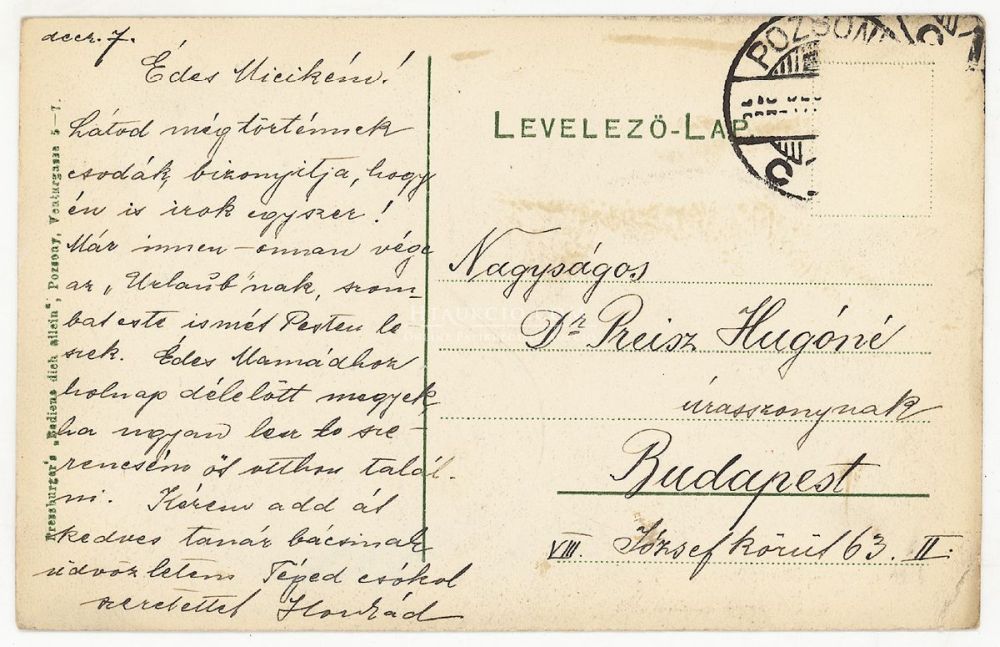 decz. 7.
Édes Micikém!
Látod mégtörténnek
csodák, bizonyitja, hogy
én is irok egyszer!
Már innen-onnan vége
az „Urlaub"nak, szom-
bat este ismét Pesten le
szek. Édes Mamádhoz
holnap délelőtt megyek,
ha ugyan lesz sze-
rencsém őt otthon talál-
ni. Kérem add át
kedves tanár bácsinak
üdvözletem Téged csókol
szeretettel
Pressburger's „Bediene dich allein", Pozsony, Venturgasse 5-7.
LEVELEZŐ-LAP.
POZSONY
Nagyságos
Dr Preisz Hugóné
úrasszonynak
Budapest
VIII. József körút 63. II.